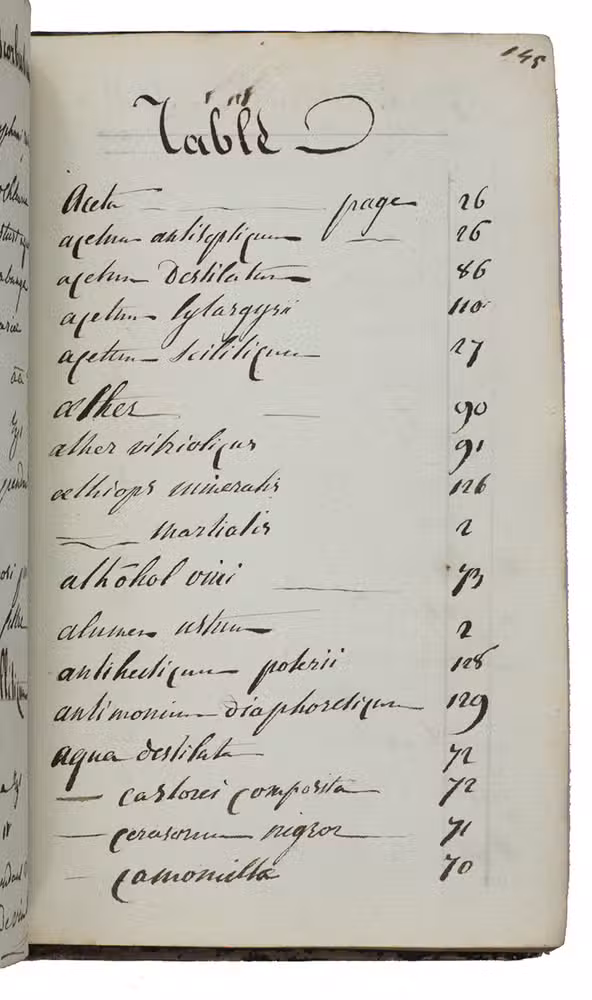 145
Table
Aceta page 26
acetum antisepticum 26
acetum Destilatum 86
acetum lytargyrii 110
acetum scilliticum 27
æther 90
æther vitriolicus 91
æthiops mineralis 126
martialis 2
alkohol vini 73
alumen ustum 2
antihecticum poterii 128
antimonium diaphoreticum 129
aqua destilata 72
— castorei composita 72
— cerasorum nigror 71
camomilla 70